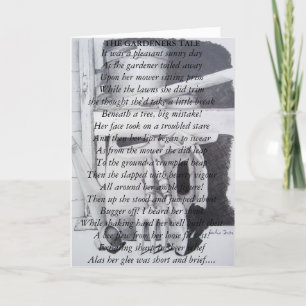 THE GARDENERS TALE
It was a pleasant sunny day
As the gardener toiled away
Upon her mower sitting prim
While the lawns she did trim
she thought she'd take a little break
Beneath a tree, big mistake!
Her face took on a troubled stare
And then her lips began to swear
As from the mower she did leap
To the ground a crumpled heap
Then she slapped with hearty vigour
All around her ample figure!
Then up she stood and jumped about
Bugger off! I heard her shout
While shaking hard her well built chest
A bee flew from her loose fit vest!
Exhaling short
Alas her glee was short and brief....